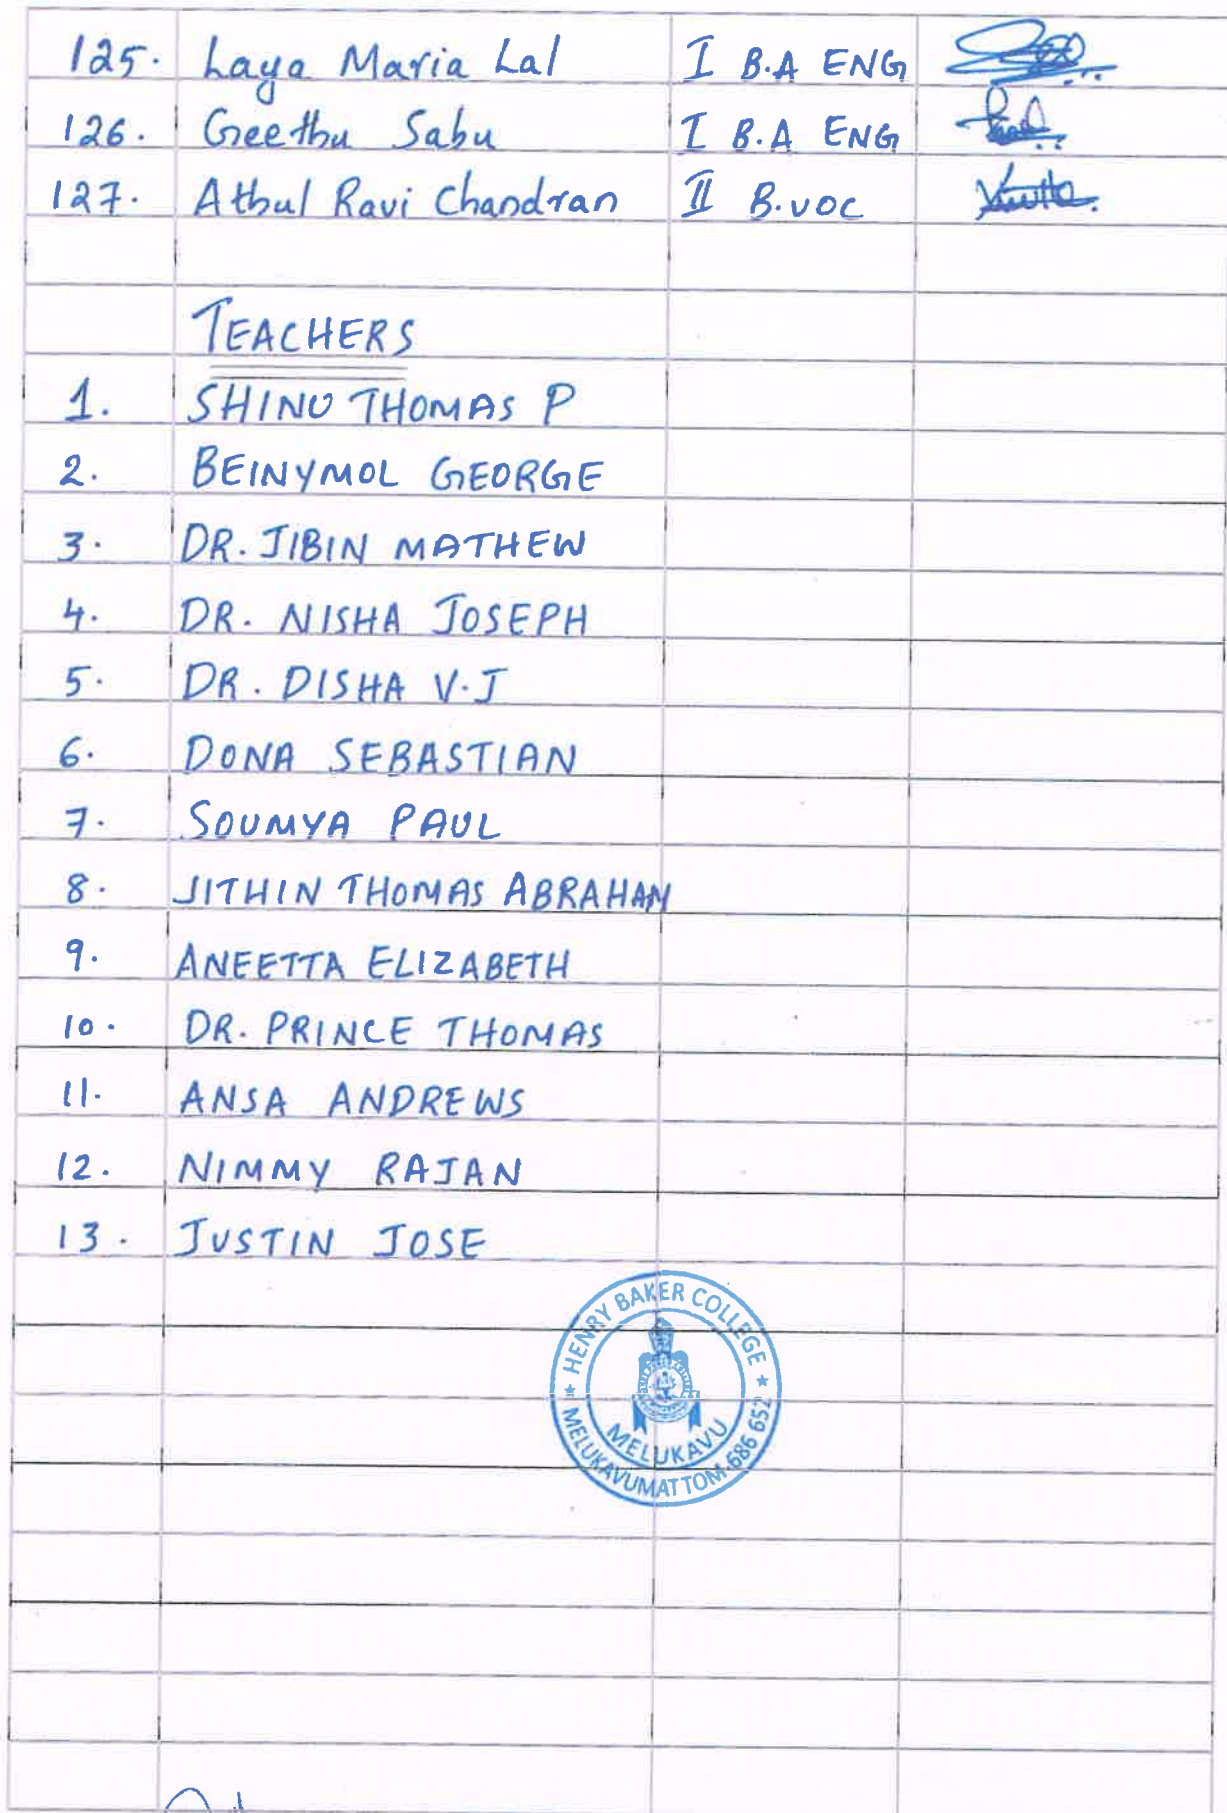 125. Laya Maria Lal I B.A ENG
126. Geethu Sabu I B.A ENG
127. Athul Ravi Chandran II B.voc
TEACHERS
1. SHINU THOMAS P
2. BEINYMOL GEORGE
3. DR. JIBIN MATHEW
4. DR. NISHA JOSEPH
5. DR. DISHA V.J
6. DONA SEBASTIAN
7. SOUMYA PAUL
8. JITHIN THOMAS ABRAHAM
9. ANEETTA ELIZABETH
10. DR. PRINCE THOMAS
11. ANSA ANDREWS
12. NIMMY RAJAN
13. JUSTIN JOSE
★ HENRY BAKER COLLEGE ★
MELUKAVU
MELUKAVUMATTOM-686 652